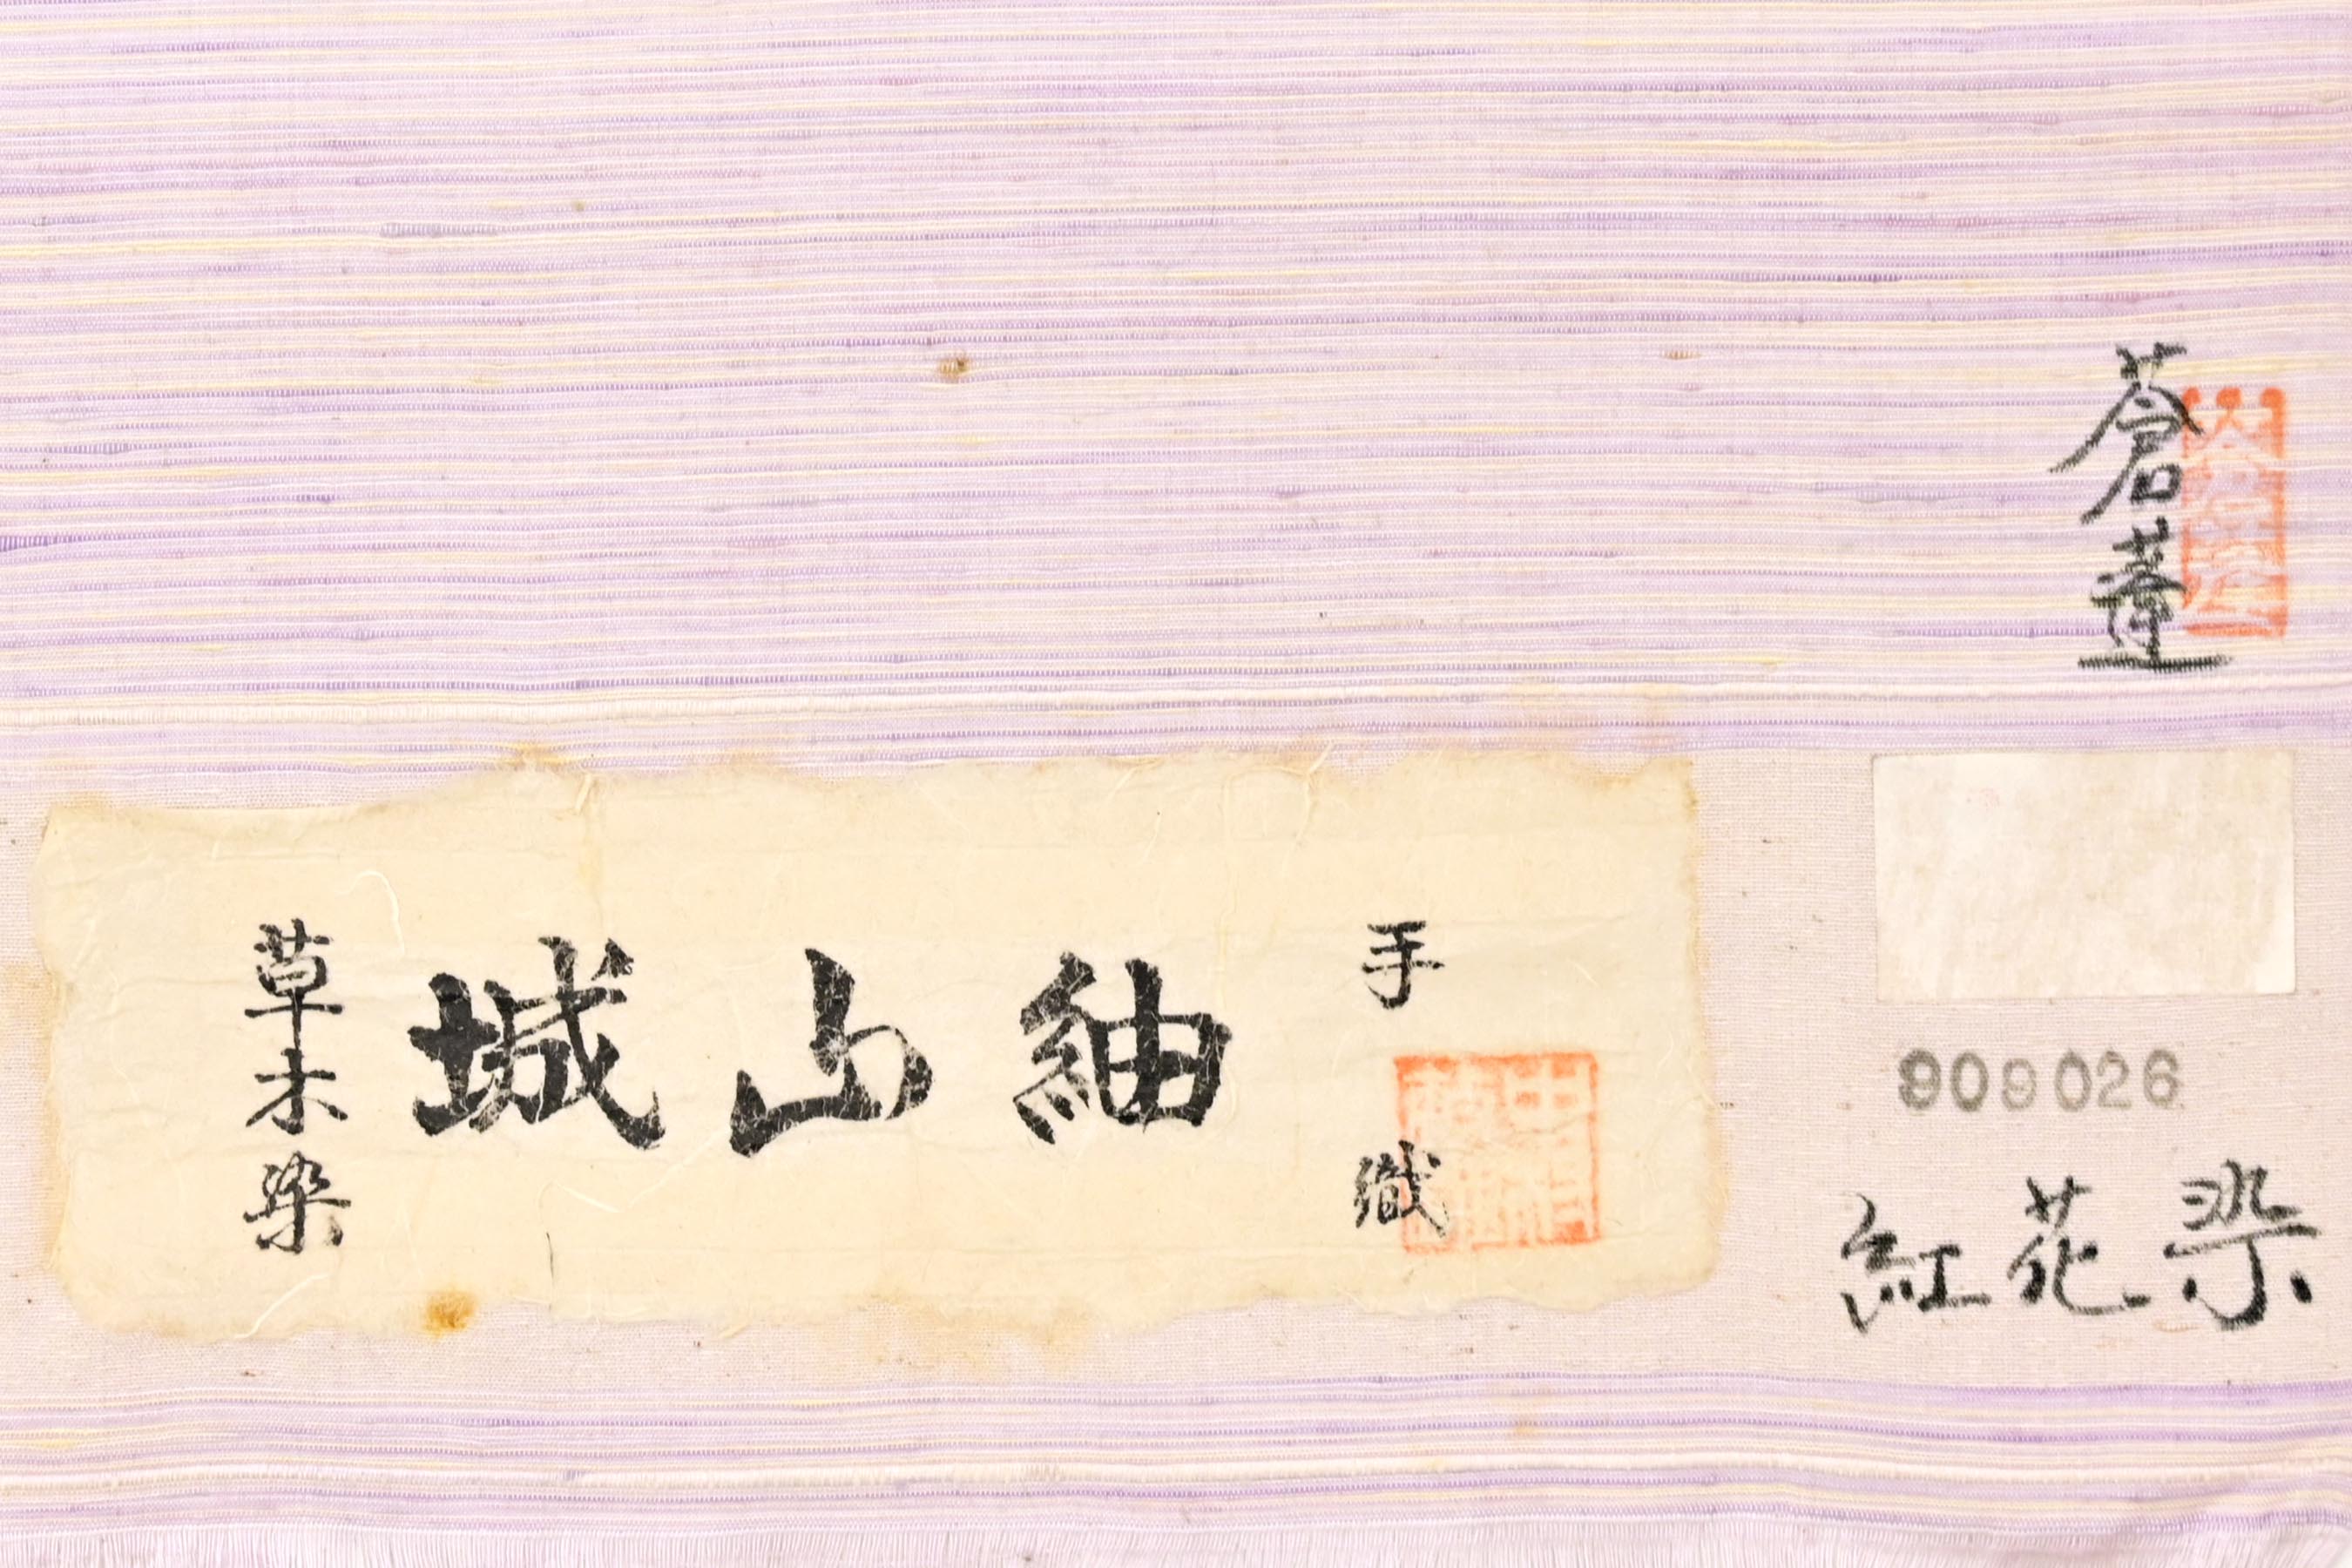 蒼蓮
草木染
城山紬
手織
909026
紅花染